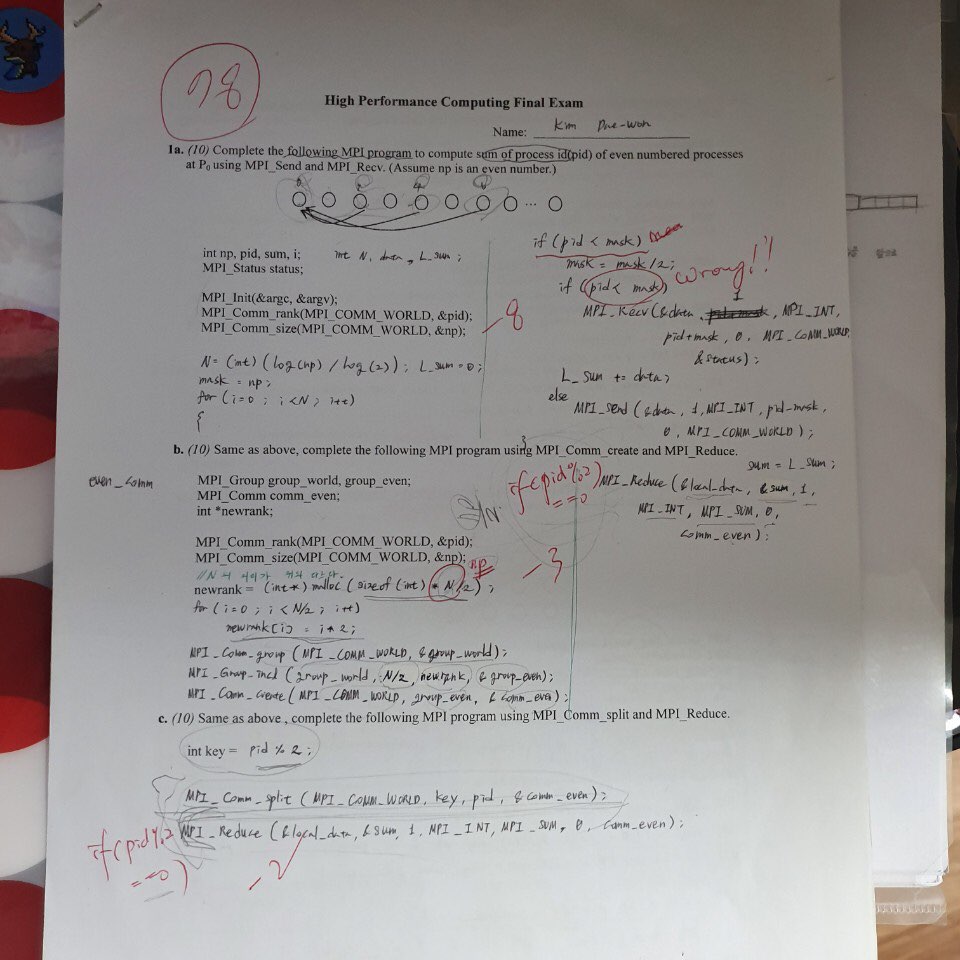 78
High Performance Computing Final Exam
Name: Kim Dae-won
1a. (10) Complete the following MPI program to compute sum of process id(pid) of even numbered processes
at P0 using MPI_Send and MPI_Recv. (Assume np is an even number.)
0 2 4 8
...
int np, pid, sum, i; int N, data, L_sum;
MPI_Status status;
MPI_Init(&argc, &argv);
MPI_Comm_rank(MPI_COMM_WORLD, &pid);
MPI_Comm_size(MPI_COMM_WORLD, &np);
N = (int) (log(np) / log(2)); L_sum = 0;
mask = np;
for (i=0 ; i<N ; i++)
{
-8
if (pid < mask)
mask = mask/2;
if (pid < mask) wrong!!
MPI_Recv(&data, 1, MPI_INT,
pid+mask, 0, MPI_COMM_WORLD
&status);
L_sum += data;
else
MPI_Send (&data, 1, MPI_INT, pid-mask,
0, MPI_COMM_WORLD);
}
sum = L_sum;
b. (10) Same as above, complete the following MPI program using MPI_Comm_create and MPI_Reduce.
even_comm
MPI_Group group_world, group_even;
MPI_Comm comm_even;
int *newrank;
MPI_Comm_rank(MPI_COMM_WORLD, &pid);
MPI_Comm_size(MPI_COMM_WORLD, &np);
newrank = (int*) malloc (sizeof (int) * N/2); np
for (i=0 ; i < N/2 ; i++)
newrank[i] = i*2;
MPI_Comm_group (MPI_COMM_WORLD, &group_world);
MPI_Group_incl (group_world, N/2, newrank, &group_even);
MPI_Comm_create (MPI_COMM_WORLD, group_even, &comm_even);
if(pid%2
==0)
MPI_Reduce (&local_data, &sum, 1,
MPI_INT, MPI_SUM, 0,
comm_even);
-3
c. (10) Same as above , complete the following MPI program using MPI_Comm_split and MPI_Reduce.
int key = pid % 2;
MPI_Comm_split (MPI_COMM_WORLD, key, pid, &comm_even);
if(pid%2
==0)
MPI_Reduce (&local_data, &sum, 1, MPI_INT, MPI_SUM, 0, comm_even);
-2